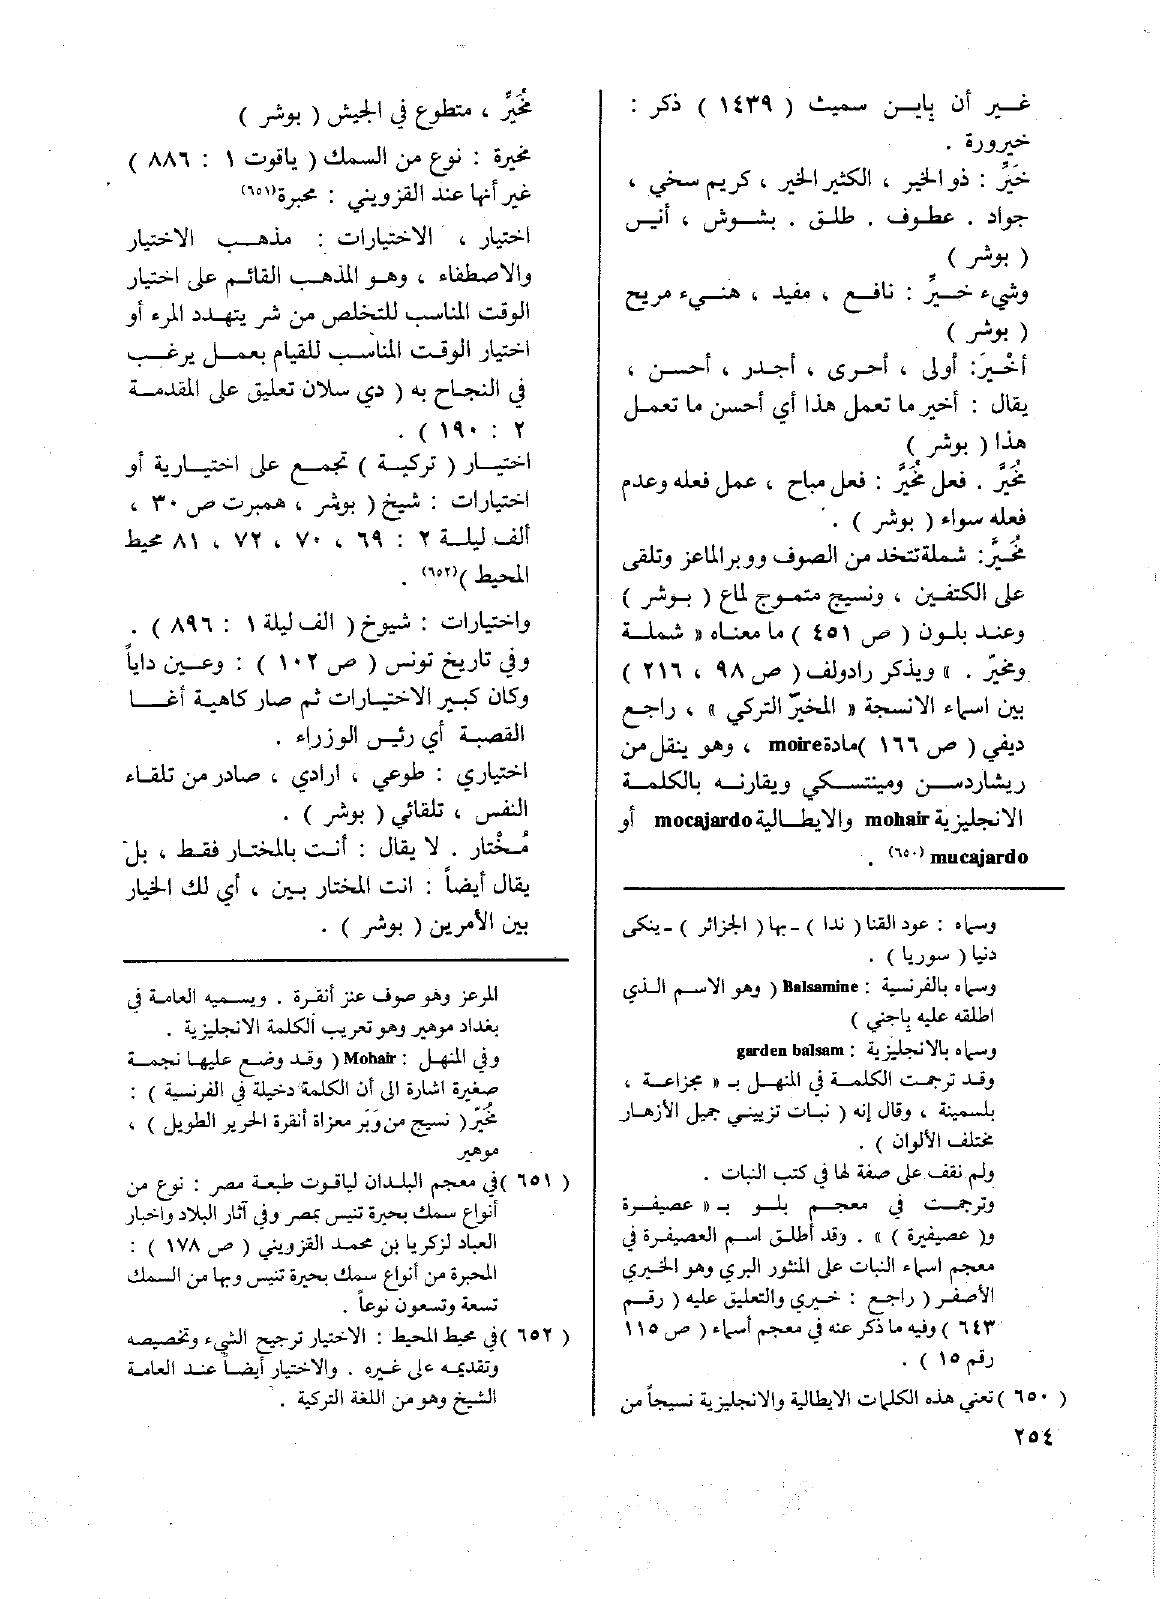 غير أن باين سميث ( ١٤٣٩ ) ذكر :
خيرورة .
خَيِّر : ذو الخير ، الكثير الخير ، كريم سخي ،
جواد . عطوف . طلق . بشوش ، أنيس
( بوشر )
وشيء خيِّر : نافع ، مفيد ، هنيء مريح
( بوشر )
أخْيرَ: أولى ، أحرى ، أجدر ، أحسن ،
يقال : أخير ما تعمل هذا أي أحسن ما تعمل
هذا ( بوشر )
مُخَيَّر . فعل مُخَيَّر : فعل مباح ، عمل فعله وعدم
فعله سواء ( بوشر ) .
مُخَيَّر: شملة تتخد من الصوف ووبر الماعز وتلقى
على الكتفين ، ونسيج متموج لماع ( بوشر )
وعند بلون ( ص ٤٥١ ) ما معناه « شملة
ومخيّر . » ويذكر رادولف ( ص ٩٨ ، ٢١٦ )
بين اسماء الانسجة « المخيّر التركي » ، راجع
ديفي ( ص ١٦٦ ) مادة moire ، وهو ينقل من
ريشاردسن ومينتسكي ويقارنه بالكلمة
الانجليزية mohair والايطالية mocajardo أو
mucajardo (٦٥٠) .
وسماه : عود القنا ( ندا ) - بها ( الجزائر ) - ينكى
دنيا ( سوريا ) .
وسماه بالفرنسية : Balsamine ( وهو الاسم الذي
اطلقه عليه باجني )
وسماه بالانجليزية : garden balsam
وقد ترجمت الكلمة في المنهل بـ « مجزاعة ،
بلسمينة ، وقال إنه ( نبات تزييني جميل الأزهار
مختلف الألوان ) .
ولم نقف على صفة لها في كتب النبات .
وترجمت في معجم بلو بـ « عصيفرة
و( عصيفيرة ) » . وقد أطلق اسم العصيفرة في
معجم اسماء النبات على المنثور البري وهو الخيري
الأصفر ( راجع : خيري والتعليق عليه ( رقم
٦٤٣ ) وفيه ما ذكر عنه في معجم أسماء ( ص ١١٥
رقم ١٥ ) .
( ٦٥٠ ) تعني هذه الكلمات الايطالية والانجليزية نسيجاً من
٢٥٤
مُخَيَّر ، متطوع في الجيش ( بوشر )
مخيرة : نوع من السمك ( ياقوت ١ : ٨٨٦ )
غير أنها عند القزويني : محبرة (٦٥١)
اختيار ، الاختيارات : مذهب الاختيار
والاصطفاء ، وهو المذهب القائم على اختيار
الوقت المناسب للتخلص من شر يتهدد المرء أو
اختيار الوقت المناسب للقيام بعمل يرغب
في النجاح به ( دي سلان تعليق على المقدمة
٢ : ١٩٠ ) .
اختيار ( تركية ) تجمع على اختيارية أو
اختيارات : شيخ ( بوشر ، همبرت ص ٣٠ ،
ألف ليلة ٢ : ٦٩ ، ٧٠ ، ٧٢ ، ٨١ محيط
المحيط ) (٦٥٢) .
واختيارات : شيوخ ( الف ليلة ١ : ٨٩٦ ) .
وفي تاريخ تونس ( ص ١٠٢ ) : وعين داياً
وكان كبير الاختيارات ثم صار كاهية أغا
القصبة أي رئيس الوزراء .
اختياري : طوعي ، ارادي ، صادر من تلقاء
النفس ، تلقائي ( بوشر ) .
مُخْتار . لا يقال : أنت بالمختار فقط ، بل
يقال أيضاً : انت المختار بين ، أي لك الخيار
بين الأمرين ( بوشر ) .
المرعز وهو صوف عنز أنقرة . ويسميه العامة في
بغداد موهير وهو تعريب الكلمة الانجليزية .
وفي المنهل : Mohair ( وقد وضع عليها نجمة
صغيرة اشارة الى أن الكلمة دخيلة في الفرنسية ) :
مُخَيَّر ( نسيج من وَبَر معزاة أنقرة الحرير الطويل ) ،
موهير
( ٦٥١ ) في معجم البلدان لياقوت طبعة مصر : نوع من
أنواع سمك بحيرة تنيس بمصر وفي آثار البلاد واخبار
العباد لزكريا بن محمد القزويني ( ص ١٧٨ ) :
المحبرة من أنواع سمك بحيرة تنيس وبها من السمك
تسعة وتسعون نوعاً .
( ٦٥٢ ) في محيط المحيط : الاختيار ترجيح الشيء وتخصيصه
وتقديمه على غيره . والاختيار أيضاً عند العامة
الشيخ وهو من اللغة التركية .